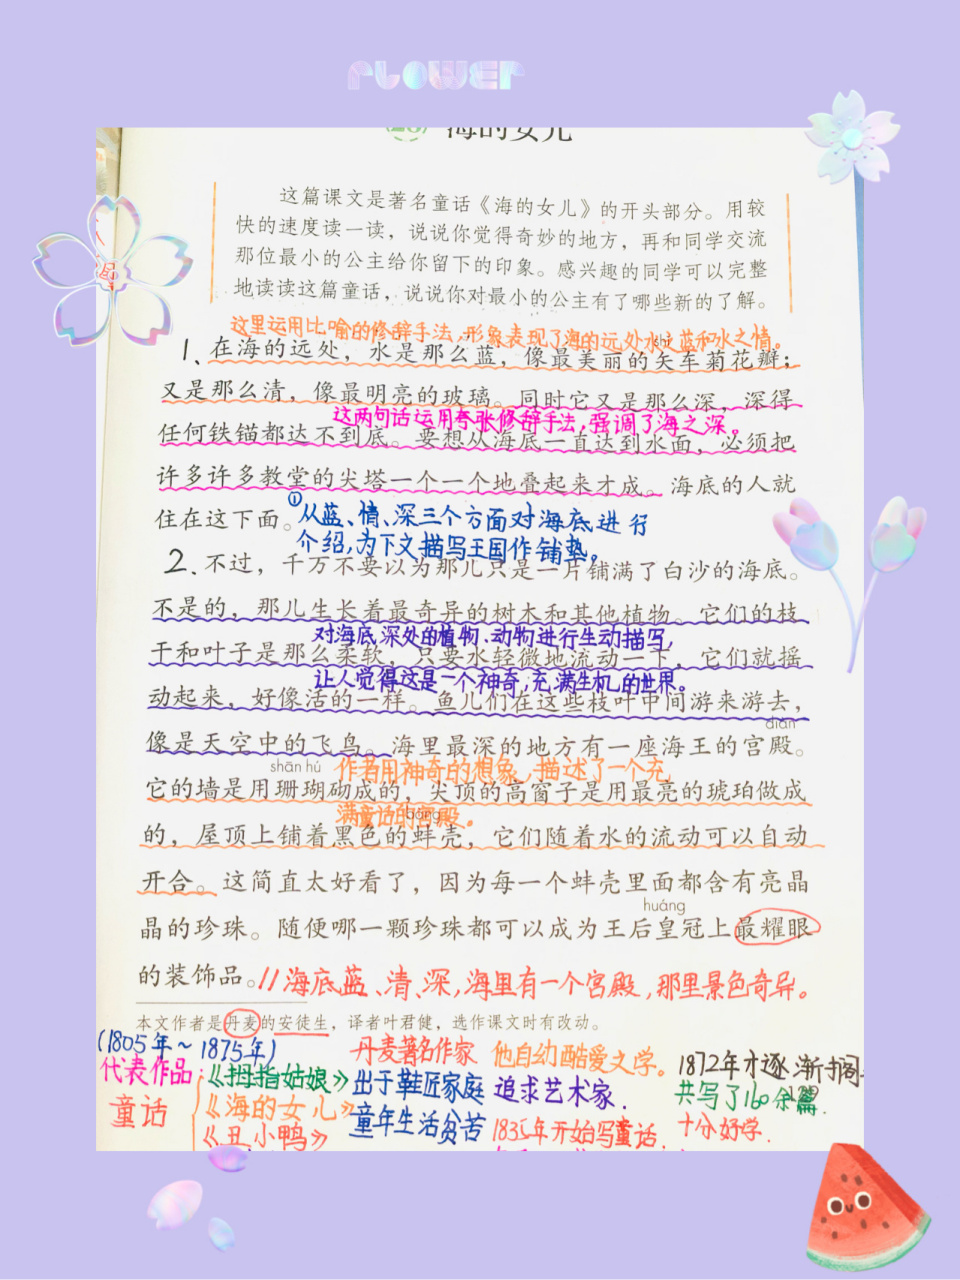 FLOWER
28 海的女儿
这篇课文是著名童话《海的女儿》的开头部分。用较
快的速度读一读，说说你觉得奇妙的地方，再和同学交流
那位最小的公主给你留下的印象。感兴趣的同学可以完整
地读读这篇童话，说说你对最小的公主有了哪些新的了解。
这里运用比喻的修辞手法,形象表现了海的远处水之蓝和水之情。
shǐ
1、在海的远处，水是那么蓝，像最美丽的矢车菊花瓣；
又是那么清，像最明亮的玻璃。同时它又是那么深，深得
这两句话运用夸张修辞手法,强调了海之深。
任何铁锚都达不到底。要想从海底一直达到水面，必须把
许多许多教堂的尖塔一个一个地叠起来才成。海底的人就
住在这下面。①从蓝、情、深三个方面对海底进行
介绍,为下文描写王国作铺垫。
2、不过，千万不要以为那儿只是一片铺满了白沙的海底。
不是的，那儿生长着最奇异的树木和其他植物。它们的枝
对海底深处的植物、动物进行生动描写,
干和叶子是那么柔软，只要水轻微地流动一下，它们就摇
让人觉得这是一个神奇,充满生机的世界。
动起来，好像活的一样。鱼儿们在这些枝叶中间游来游去，
diàn
像是天空中的飞鸟。海里最深的地方有一座海王的宫殿。
shān hú 作者用神奇的想象,描述了一个充
它的墙是用珊瑚砌成的，尖顶的高窗子是用最亮的琥珀做成
满童话的宫殿。
bàng
的，屋顶上铺着黑色的蚌壳，它们随着水的流动可以自动
开合。这简直太好看了，因为每一个蚌壳里面都含有亮晶
huáng
晶的珍珠。随便哪一颗珍珠都可以成为王后皇冠上最耀眼
的装饰品。//海底蓝、清、深,海里有一个宫殿,那里景色奇异。
本文作者是丹麦的安徒生，译者叶君健，选作课文时有改动。
(1805年～1875年) 丹麦著名作家 他自幼酷爱文学。 1872年才逐渐搁
代表作品:《拇指姑娘》 出于鞋匠家庭 追求艺术家. 共写了160余篇.
童话 《海的女儿》 童年生活贫苦 1835年开始写童话. 十分好学.
《丑小鸭》